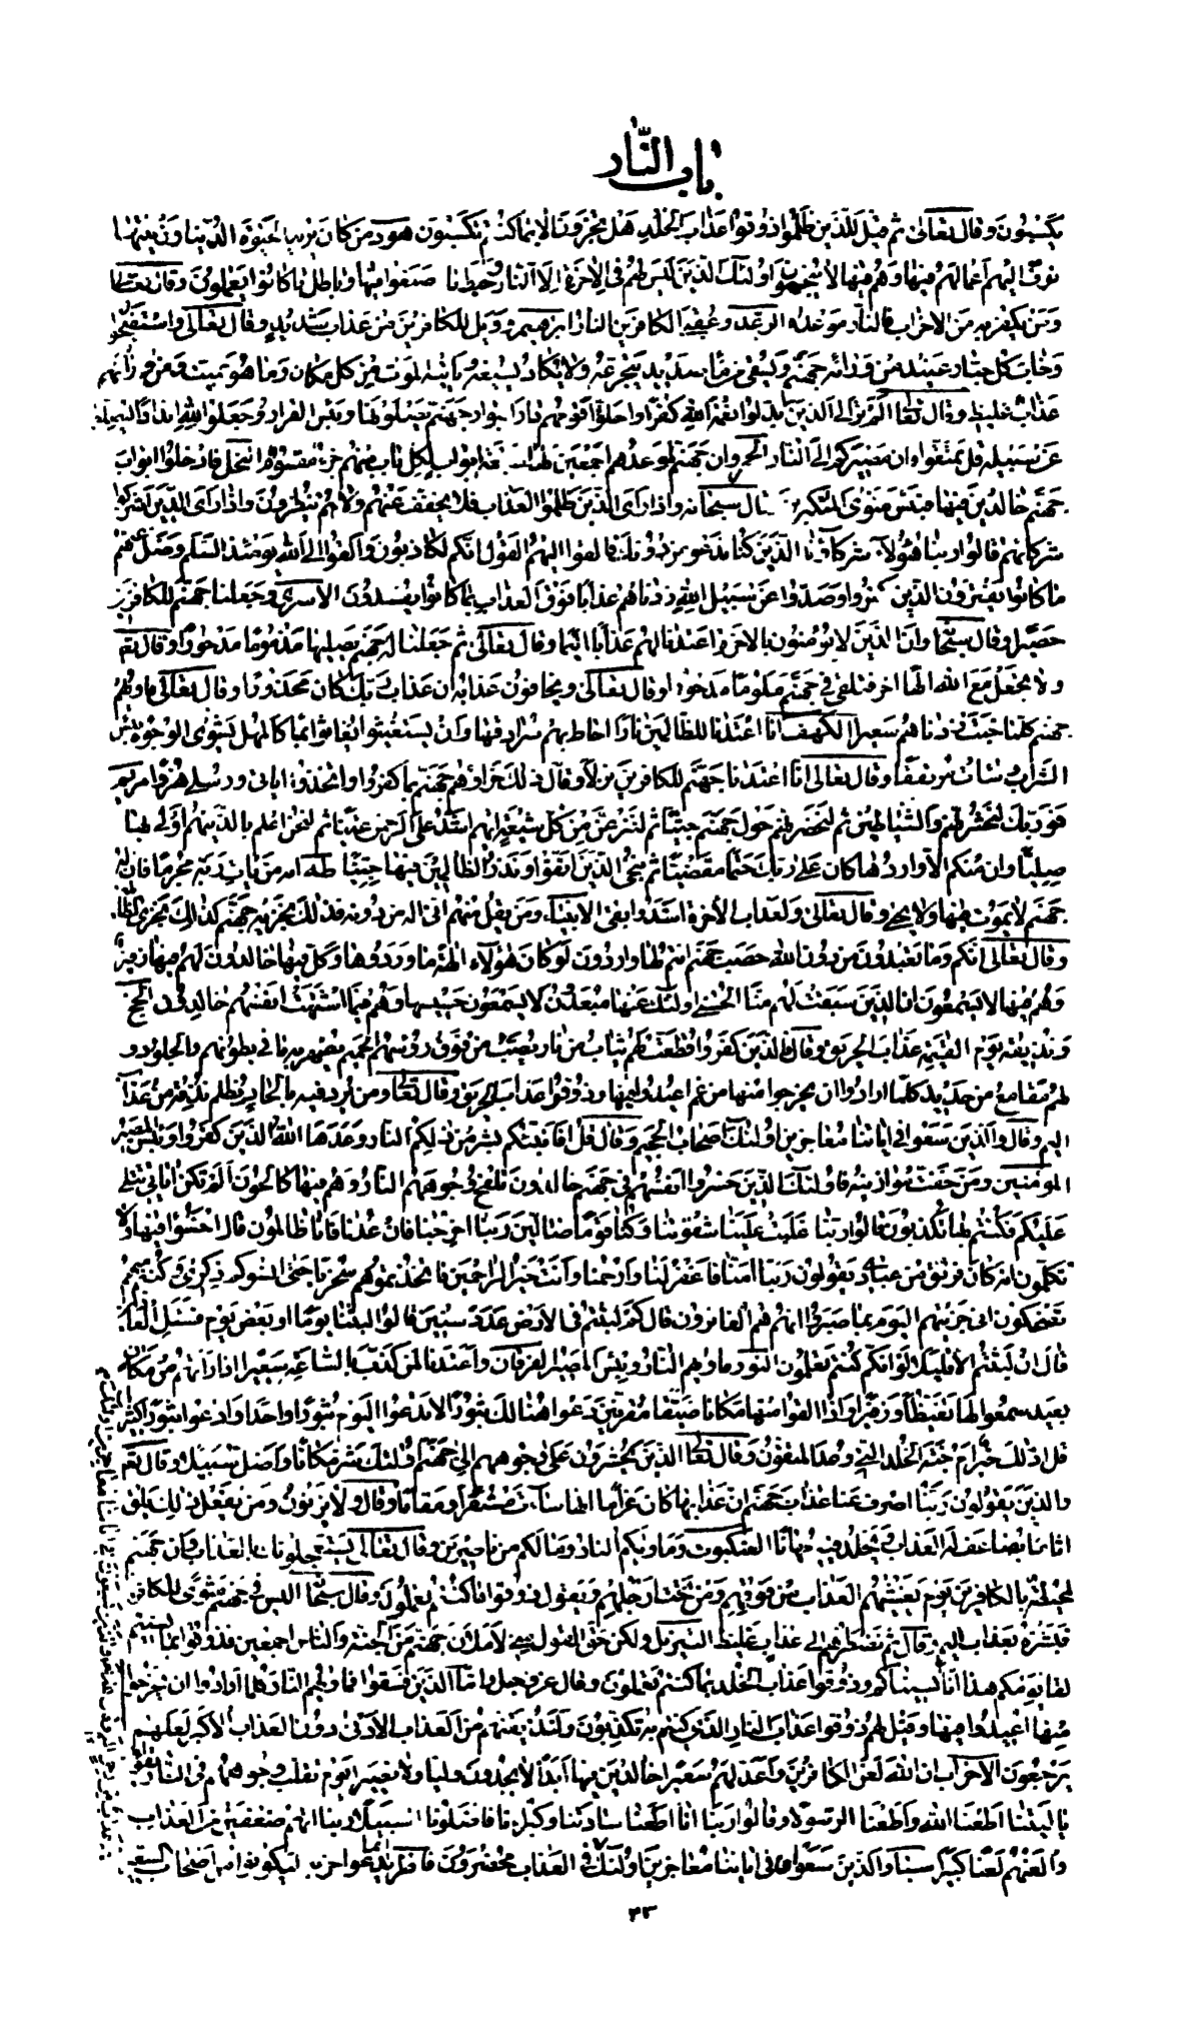 باب النّار
يَكْسِبُونَ وقال تعالى ثم قيل للّذين ظلموا ذوقوا عذاب الخلد هل تجزون الا بما كنتم تكسبون هود من كان يريد الحيوة الدّنيا وزينتها
نوفّ اليهم اعمالهم فيها وهم فيها لا يبخسون اولئك الّذين ليس لهم في الاخرة الا النّار وحبط ما صنعوا فيها وباطل ما كانوا يعملون وقال تعالى
ومن يكفر به من الاحزاب فالنّار موعده الرعد وعقبى الكافرين النار ابرهيم وويل للكافرين من عذاب شديد وقال تعالى واستفتحوا
وخاب كل جبّار عنيد من ورائه جهنّم ويسقى من ماء صديد يتجرّعه ولا يكاد يسيغه وياتيه الموت من كل مكان وما هو بميت ومن ورائهم
عذاب غليظ وقال تعالى الم تر الى الّذين بدّلوا نعمة الله كفرا واحلّوا قومهم دار البوار جهنّم يصلونها وبئس القرار وجعلوا لله اندادا ليضلّوا
عن سبيله قل تمتّعوا فان مصيركم الى النار الحجر وان جهنّم لموعدهم اجمعين لها سبعة ابواب لكل باب منهم جزء مقسوم النحل فادخلوا ابواب
جهنّم خالدين فيها فبئس مثوى المتكبرين وقال سبحانه واذا راى الّذين ظلموا العذاب فلا يخفف عنهم ولا هم ينظرون واذا راى الّذين اشركوا
شركائهم قالوا ربّنا هؤلاء شركاؤنا الّذين كنّا ندعو من دونك فالقوا اليهم القول انّكم لكاذبون والقوا الى الله يومئذ السّلم وضلّ عنهم
ما كانوا يفترون الّذين كفروا وصدّوا عن سبيل الله زدناهم عذابا فوق العذاب بما كانوا يفسدون الاسرى وجعلنا جهنّم للكافرين
حصيرا وقال سبحانه وان الّذين لا يؤمنون بالاخرة اعتدنا لهم عذابا اليما وقال تعالى ثم جعلنا له جهنّم يصليها مذموما مدحورا وقال تعم
ولا تجعل مع الله الها اخر فتلقى في جهنّم ملوما مدحورا وقال تعالى ويخافون عذابه ان عذاب ربّك كان محذورا وقال تعالى ماويهم
جهنّم كلّما خبت زدناهم سعيرا الكهف انا اعتدنا للظالمين نارا احاط بهم سرادقها وان يستغيثوا يغاثوا بماء كالمهل يشوى الوجوه بئس
الشراب وساءت مرتفقا وقال تعالى انّا اعتدنا جهنّم للكافرين نزلا وقال ذلك جزاؤهم جهنّم بما كفروا واتخذوا اياتي ورسلي هزوا مريم
فوربّك لنحشرنّهم والشّياطين ثم لنحضرنّهم حول جهنّم جثيّا ثم لننزعنّ من كل شيعة ايهم اشدّ على الرحمن عتيّا ثم لنحن اعلم بالّذين هم اولى بها
صليّا وان منكم الا واردها كان على ربّك حتما مقضيّا ثم ننجّى الّذين اتّقوا ونذر الظالمين فيها جثيّا طه انه من يات ربّه مجرما فان له
جهنّم لا يموت فيها ولا يحيى وقال تعالى ولعذاب الاخرة اشدّ وابقى الانبياء ومن يقل منهم انّى اله من دونه فذلك نجزيه جهنّم كذلك نجزى الظالمين
وقال تعالى انّكم وما تعبدون من دون الله حصب جهنّم انتم لها واردون لو كان هؤلاء الهة ما وردوها وكلّ فيها خالدون لهم فيها زفير
وهم فيها لا يسمعون ان الّذين سبقت لهم منّا الحسنى اولئك عنها مبعدون لا يسمعون حسيسها وهم فيما اشتهت انفسهم خالدون الحج
ونذيقه يوم القيمة عذاب الحريق وقال فالّذين كفروا قطّعت لهم ثياب من نار يصبّ من فوق رؤسهم الحميم يصهر به ما في بطونهم والجلود و
لهم مقامع من حديد كلّما ارادوا ان يخرجوا منها من غم اعيدوا فيها وذوقوا عذاب الحريق وقال تعالى ومن يرد فيه بالحاد بظلم نذقه من عذاب
اليم وقال والّذين سعوا في اياتنا معاجزين اولئك اصحاب الجحيم وقال قل افانبّئكم بشرّ من ذلكم النار وعدها الله الّذين كفروا وبئس المصير
المؤمنين ومن خفّت موازينه فاولئك الّذين خسروا انفسهم في جهنّم خالدون تلفح وجوههم النار وهم فيها كالحون الم تكن اياتي تتلى
عليكم فكنتم بها تكذبون قالوا ربّنا غلبت علينا شقوتنا وكنّا قوما ضالّين ربّنا اخرجنا فان عدنا فانّا ظالمون قال اخسئوا فيها ولا
تكلّمون انه كان فريق من عبادي يقولون ربّنا امنّا فاغفر لنا وارحمنا وانت خير الراحمين فاتّخذتموهم سخريّا حتى انسوكم ذكرى وكنتم منهم
تضحكون انّى جزيتهم اليوم بما صبروا انهم هم الفائزون قال كم لبثتم في الارض عدد سنين قالوا لبثنا يوما او بعض يوم فسئل العادّين
قال ان لبثتم الا قليلا لو انّكم كنتم تعلمون النور ماويهم النار ولبئس المصير الفرقان واعتدنا لمن كذّب بالساعة سعيرا اذا راتهم من مكان
بعيد سمعوا لها تغيّظا وزفيرا واذا القوا منها مكانا ضيّقا مقرّنين دعوا هنالك ثبورا لا تدعوا اليوم ثبورا واحدا وادعوا ثبورا كثيرا
قل اذلك خير ام جنّة الخلد التي وعد المتقون وقال تعالى الّذين يحشرون على وجوههم الى جهنّم اولئك شرّ مكانا واضلّ سبيلا وقال تعم
والّذين يقولون ربّنا اصرف عنّا عذاب جهنّم ان عذابها كان غراما انها ساءت مستقرا ومقاما وقال ولا يزنون ومن يفعل ذلك يلق
اثاما يضاعف له العذاب ويخلد فيه مهانا العنكبوت وماويكم النار وما لكم من ناصرين وقال تعالى يستعجلونك بالعذاب وان جهنّم
لمحيطة بالكافرين يوم يغشيهم العذاب من فوقهم ومن تحت ارجلهم ويقول ذوقوا ما كنتم تعملون وقال سبحانه اليس في جهنّم مثوى للكافرين
فبشّره بعذاب اليم وقال ثم نضطرّهم الى عذاب غليظ التنزيل ولكن حق القول منّى لاملانّ جهنّم من الجنّة والناس اجمعين فذوقوا بما نسيتم
لقاء يومكم هذا انّا نسيناكم وذوقوا عذاب الخلد بما كنتم تعملون وقال عز وجل وامّا الّذين فسقوا فماويهم النار كلما ارادوا ان يخرجوا
منها اعيدوا فيها وقيل لهم ذوقوا عذاب النار الذي كنتم به تكذّبون ولنذيقنّهم من العذاب الادنى دون العذاب الاكبر لعلّهم
يرجعون الاحزاب ان الله لعن الكافرين واعدّ لهم سعيرا خالدين فيها ابدا لا يجدون وليا ولا نصيرا يوم تقلّب وجوههم في النار يقولون
يا ليتنا اطعنا الله واطعنا الرسولا وقالوا ربّنا انّا اطعنا سادتنا وكبراءنا فاضلّونا السبيلا ربّنا اتهم ضعفين من العذاب
والعنهم لعنا كبيرا سبا والّذين سعوا في اياتنا معاجزين اولئك في العذاب محضرون فاطر انما يدعوا حزبه ليكونوا من اصحاب السعير
٢٣